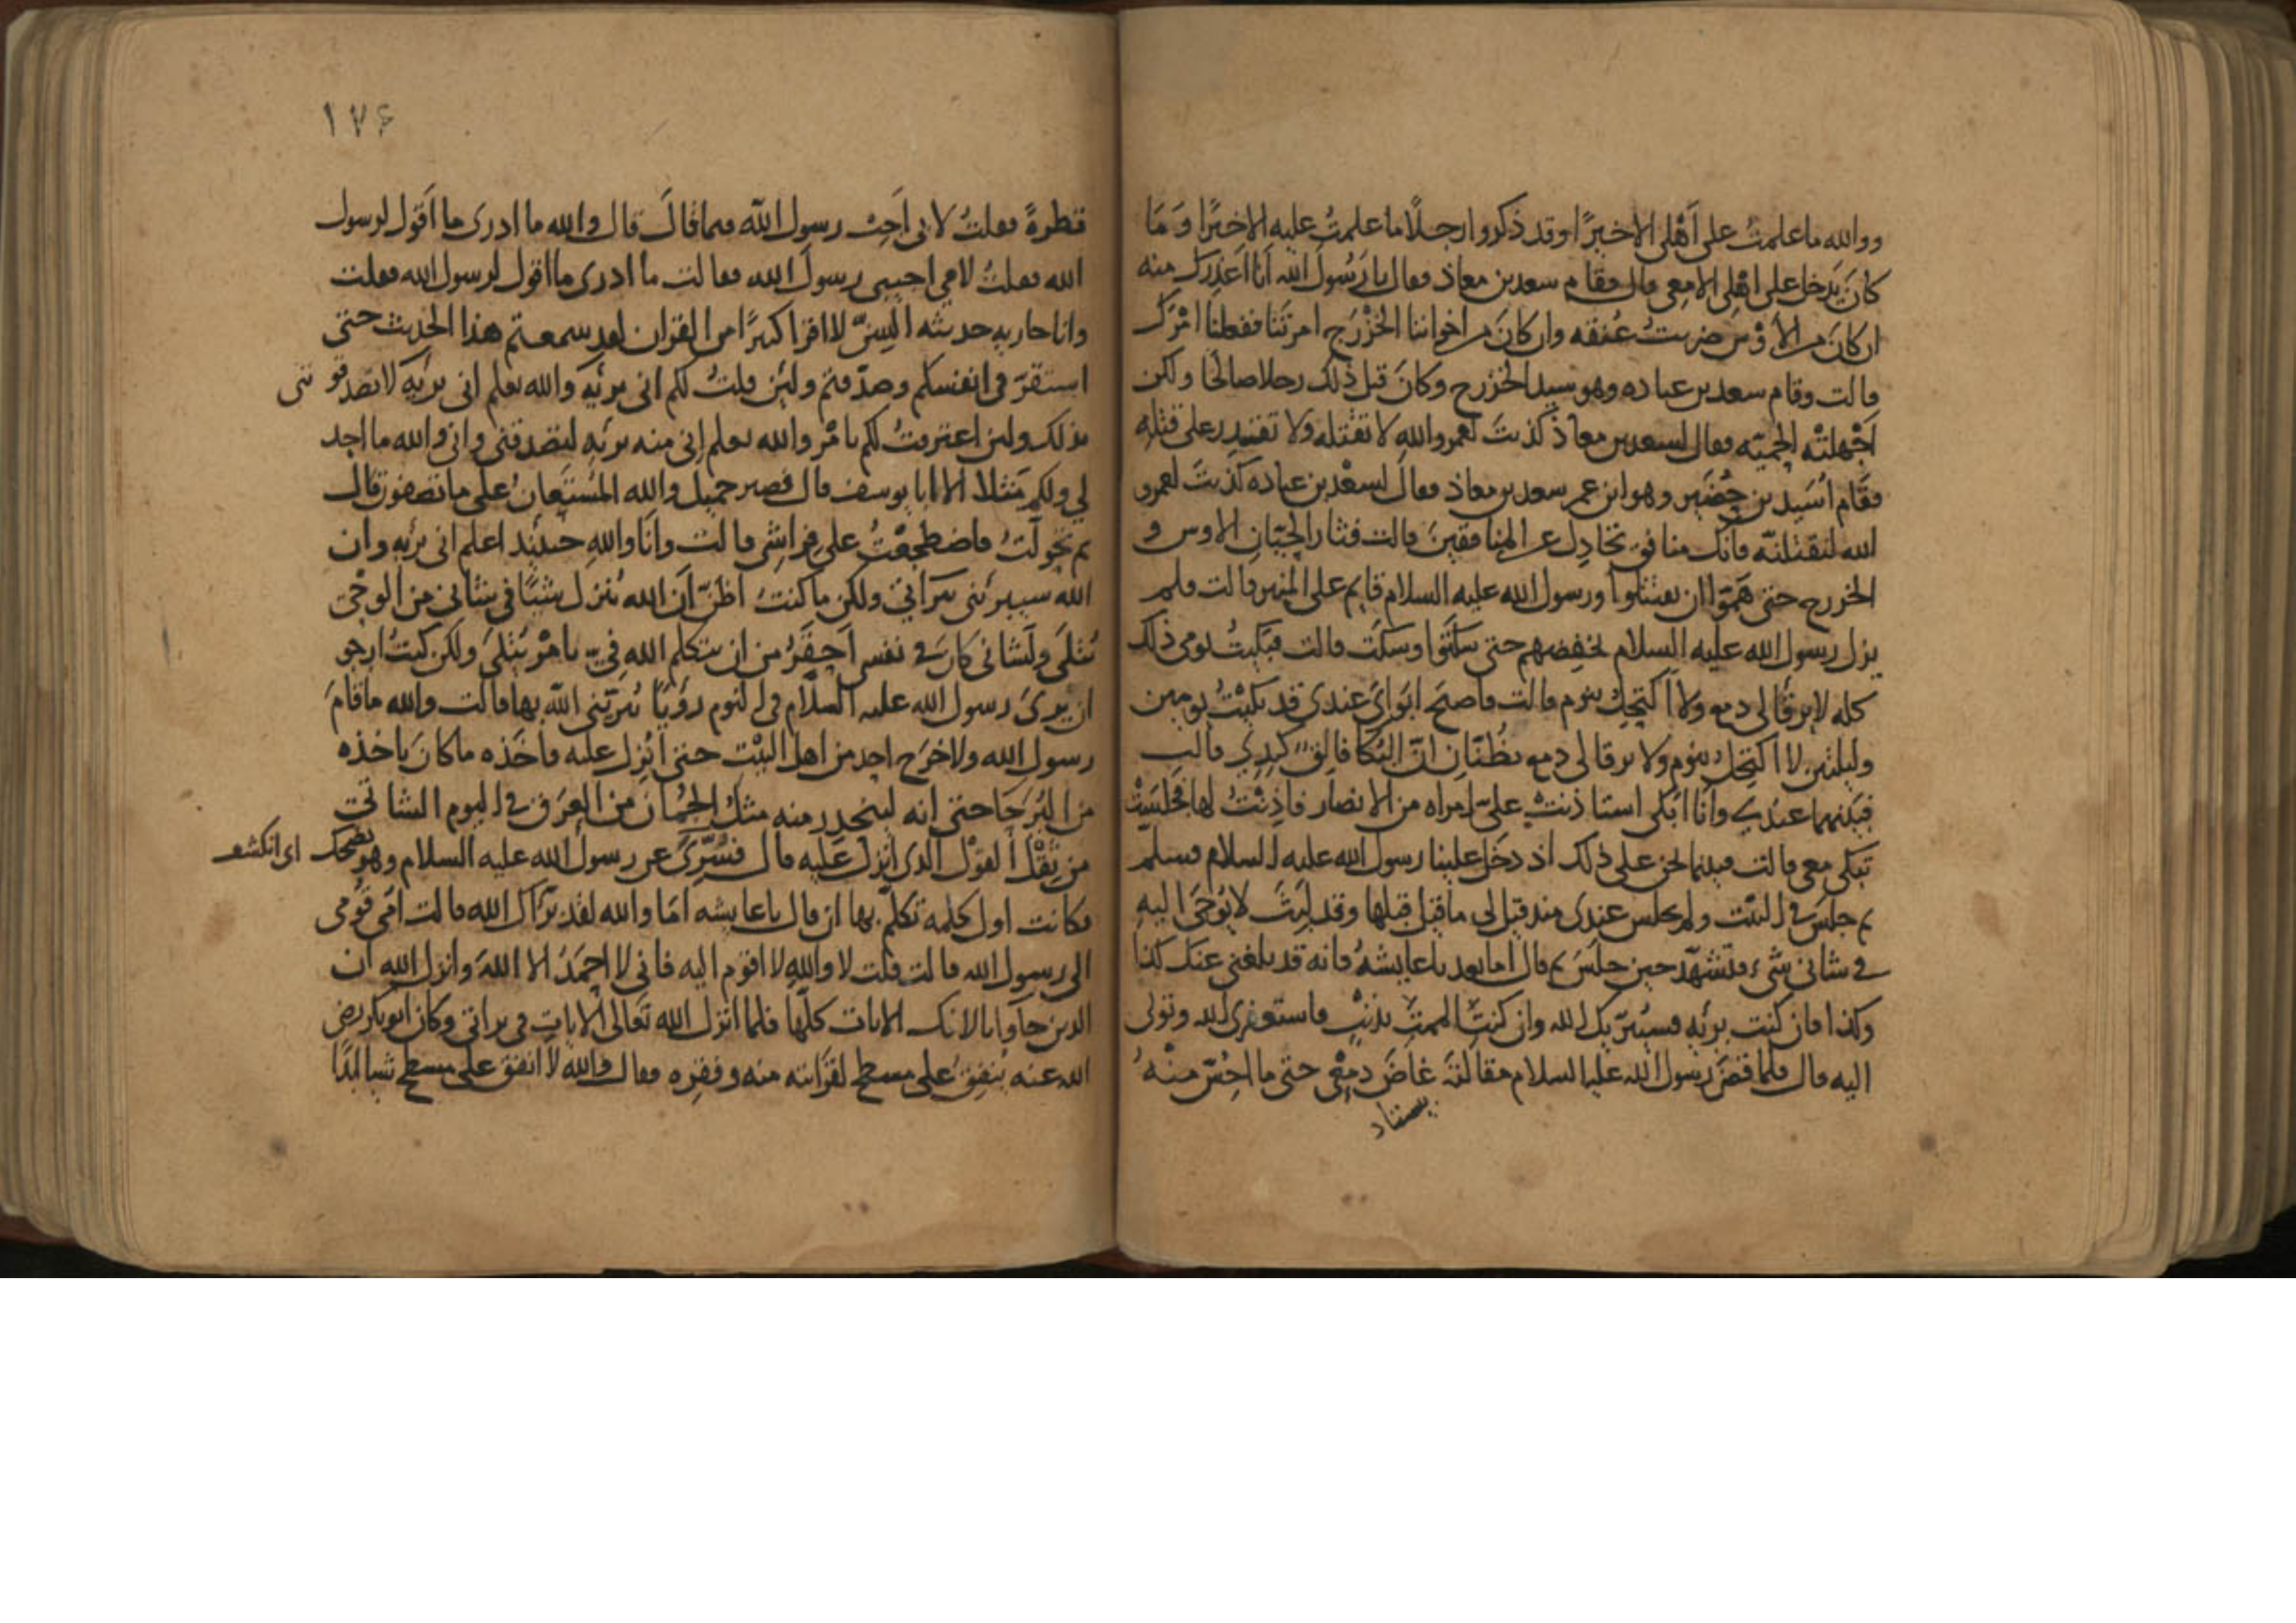 ووالله ما علمت على اهلى الا خيرًا وقد ذكروا رجلًا ما علمتُ عليه الا خيرًا وَمَا
كانَ يَدخل على اهْلى الا معى قال فقام سعد بن معاذ فقال يا رَسُولَ الله اَنا اَعْذِرك منه
ان كانَ من الاَوْس ضربتُ عُنقه وان كانَ من اخواننا الخزْرَج امرتَنا ففعلنا امْرَك
قالت وقام سعد بن عباده وهو سيد الخزرج وكانَ قبل ذلك رجلا صالحًا ولكن
اَجْهلتْه الحميّه فقال لسعد بن معاذ كذبتَ لعمرو اللهِ لا تقتله ولا تقتدر على قتله
فقَام اُسَيد بن حُضَير وهو ابن عم سعد بن معاذ فقالَ لسعْد بن عباده كذبتَ لعمرو
الله لنقتلنّه فانك منافق تجادِل عن المنافقينَ قالت فثار الحيّانِ الاوس و
الخزرج حتى هَمّوا ان يقتتلوا ورسول الله عليه السلام قايم على المنبر قالت فلم
يزل رسول الله عليه السلام يخفضهم حتى سكتوا وسكت قالت فبَكيتُ يومى ذلك
كله لا يرقَا لى دمع ولا اَكتحِل بنوم قالت فاصبَحَ ابَوَاىَ عندى قد بكيْتُ يومين
وليلتين لا اكتحِل بنوم ولا يرقا لى دمع يظُنّانِ انّ البُكا فالِق كبدِى قالت
فبَينهما عندِى وانَا ابْكى استاذنتْ علىّ امراه من الانصار فاَذِنْتُ لها فجلسَتْ
تَبكى معى قالت فبينما نحن على ذلك اذ دخَل علينا رسول الله عليه السلام فسلم
ثم جلسَ فى البيْت ولم يجلس عندى منذ قيل لى ما قيل قبلها وقد لبِثَ لا يُوحَى اليه
فى شانى شىء فتشهّد حين جلسَ ثم قال اما بعد يا عايشهُ فانه قد بلغنى عنك كذا
وكذا فان كنت بريّه فسيُبرّيك الله وان كنتِ الممتِ بذنبٍ فاستغفرى الله وتوبى
اليه قال فلما قضَى رسول الله عليه السلام مقالتَهَ غاضَ دمْعِى حتى ما اُحِسّ منْهُ
۱۷۶
قطرةً فقلتُ لابى اَجِبْ رسول الله فيما قالَ قال والله ما ادرى ما اَقول لرسول
الله فقلتُ لامى اجيبى رسولَ الله فقالت ما ادرى ما اقول لرسول الله فقلت
وانا جاريه حديثه السِنّ لا اقرا كثيرًا من القران لقد سمعتم هذا الحديث حتى
استقرّ فى انفسكم وصدّقتم ولئِن قلتُ لكم انى بريّه والله يعلم انى بريَه لا تصدقونى
بذلك ولئن اعترفتُ لكم بامْر والله يعلم انى منه بريّه لتصدقنى وانى والله ما اجد
لى ولكم مَثلا الا ابا يوسف قال فصبر جميل والله المُستَعَانُ على ما تصفون قال
ثم تحولتُ فاضطجعْتُ على فراشى قالت وانَا واللهِ حينئذ اعلم انى بريه وان
الله سيبرئنى ببراتى ولكن ما كنتُ اظنّ اَنَ الله يُنزِل شيئًا فى شانى من الوحى
يُتلَى ولَشانى كانَ فى نفسى اَحقَرُ من ان يتكلم الله فىّ بامْرٍ يُتلى ولكن كنتُ ارجو
ان يَرىَ رسول الله عليه السلام فى النوم رؤيَا يُبرّئنى اللّه بها قالت والله ما قامَ
رسول الله ولا خرَج احد من اهل البيْت حتى اُنزِل عليه فاَخَذه ما كانَ ياخذه
من البُرَحَا حتى انه ليتحدر منه مثل الجُمان من العَرَق فى اليوم الشاتى
من ثِقْل القوْل الذى اُنزل عليه قال فسُرّىَ عن رسول الله عليه السلام وهو يضحك
اى انكشف
فكانت اول كلمه تكلّم بها ان قال يا عايشه اَمّا والله لقد برّاك الله قالت اُمّى قُومى
الى رسول الله قالت قلت لا واللهِ لا اقوم اليه فانى لا احمَدُ الا اللهَ وانزل الله ان
الذين جاَوا بالافك الايات كلّها فلما انزل الله تَعَالى الايات فى براتى وكان ابو بكر رضى
الله عنه يُنفِقُ على مسطح لقرَابته منه وفقره فقال والله لا انفق على مسطح شيا ابَدًا